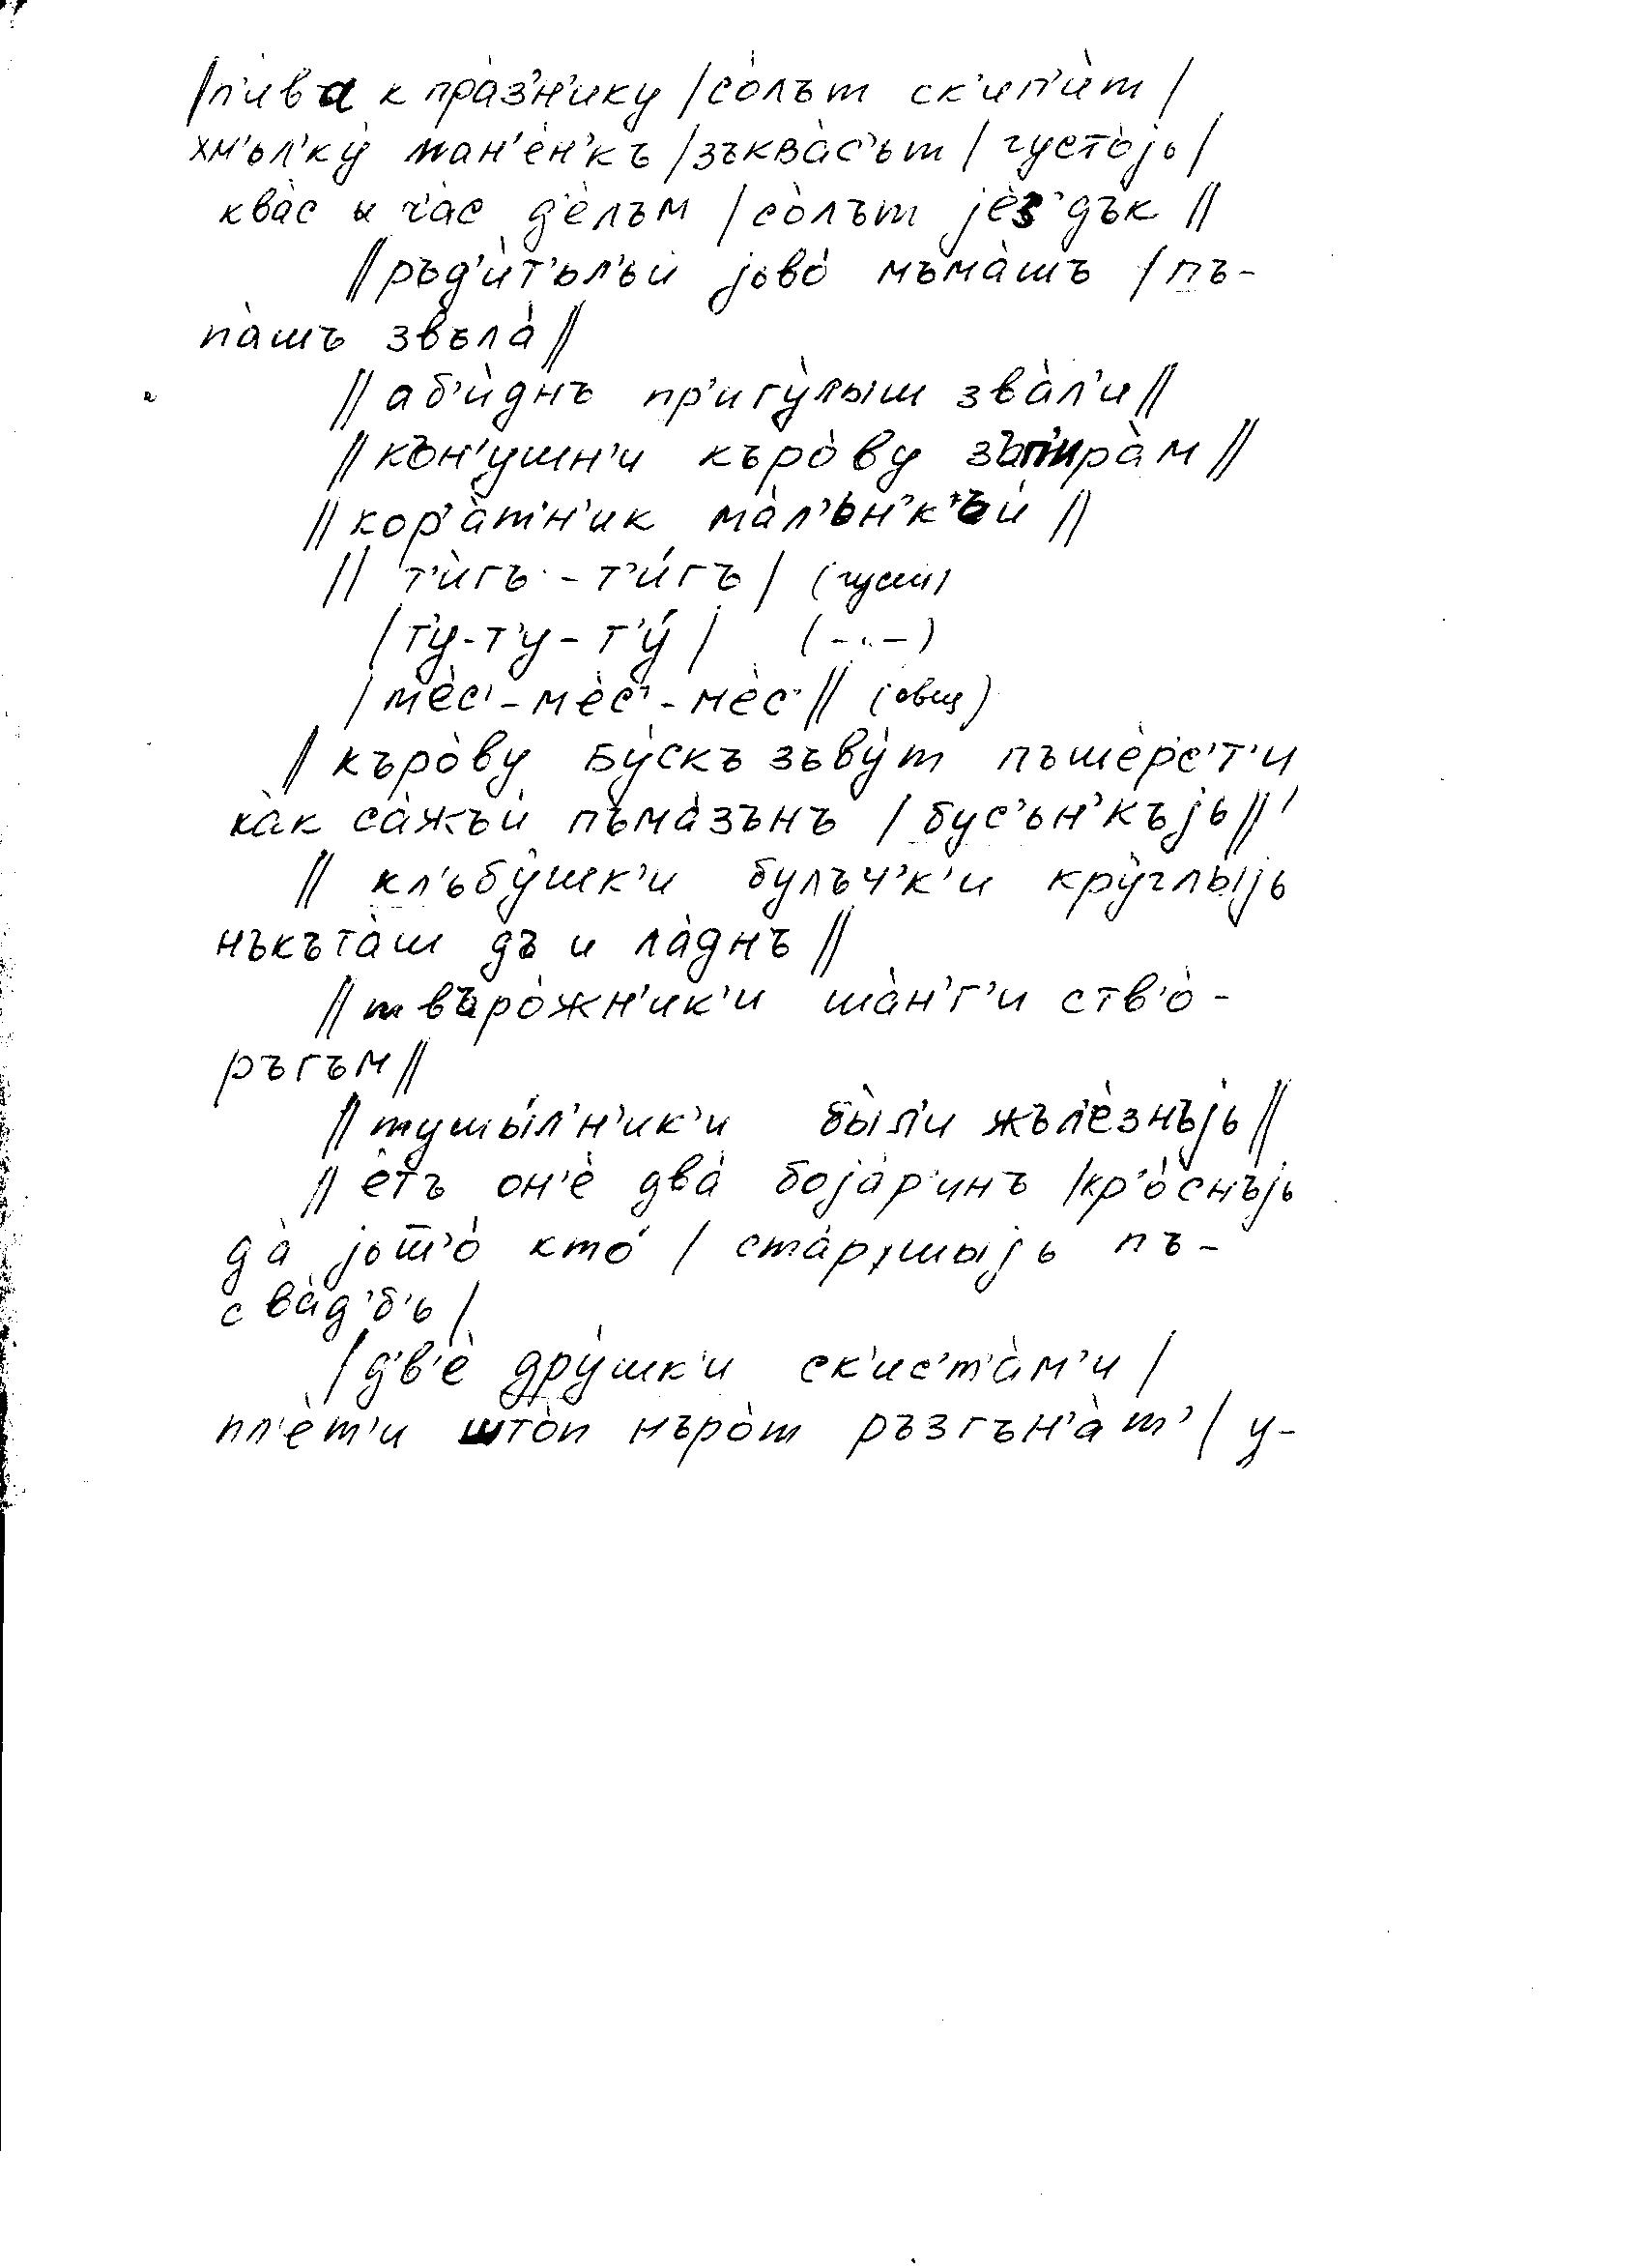 /п'и̇ва к пра̀з'н'ику /со̀лът ск'ип'ѝт /
хм'ьл'ку̀ ман'ѐн'къ /зъква̀с'ът / густо̀jь /
ква̀с и ч'а̀с д'ѐлъм /со̀лът jѐз'дък //
//ръд'ѝт'ьл'ьй jьво́ мъма̀шъ /пъ-
па̀шъ звъла̀ //
// аб'ѝднъ пр'игу̀лыш зва̀л'и //
// кън'ушн'и къро̀ву зъпира̀м //
// кор'а̀т'н'ик ма̀л'ьн'к'ьй //
// т'ѝгъ - т'и́гъ / (гуси)
/ т'у-т'у - т'у́ / (-..-)
/ мѐс' - мѐс' - мѐс' // (овц)
/ къро̀ву Бу̀скъ зъву̀т пъшѐрс'т'и
ка̀к са̀жъй пъма̀зънъ / бус'ьн'къjь //
// кл'ьбу̀шк'и булъч'к'и кру̀глыjь
нъкъта̀ш дъ и ла̀днъ //
// твъро̀жн'ик'и ша̀н'г'и ств'о̀-
ръгъм //
// тушы́л'н'ик'и бы̀л'и жъл'ѐзнъjь //
// ѐтъ он'ѐ два̀ боjа̀р'инъ /кр'о̀снъjь
да̀ jьт'о́ кто́ / ста̀ршыjь пъ-
сва̀д'б'ь /
/ д'в'ѐ дру̀шк'и ск'ис'т'а̀м'и /
пл'ѐт'и што̀п нъро̀т ръзгън'а̀т' / у-